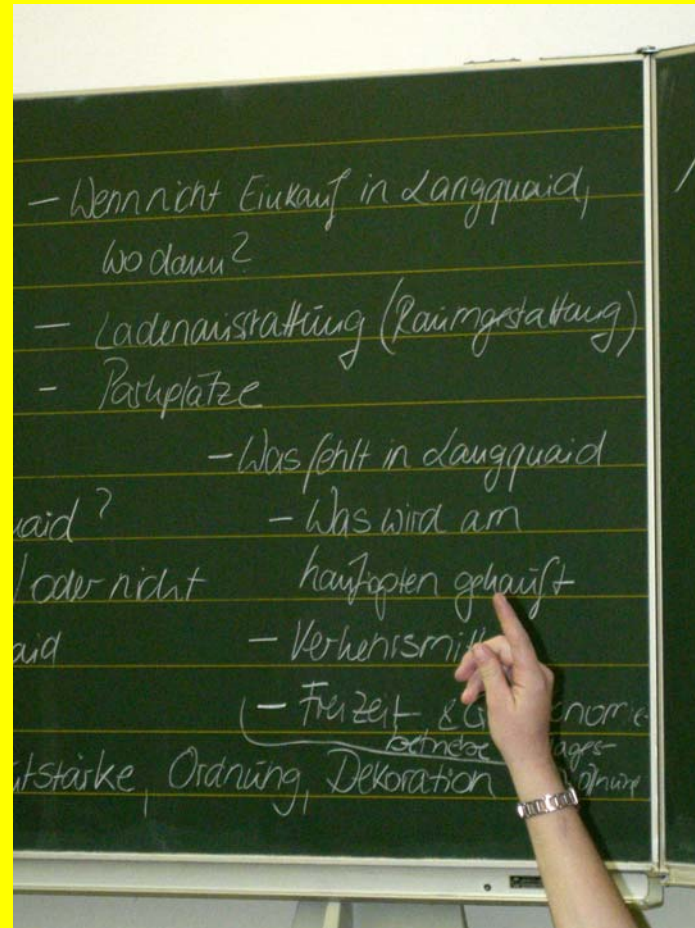 - Wenn nicht Einkauf in Langquaid,
wo dann?
- Ladenausstattung (Raumgestaltung)
- Parkplätze
- Was fehlt in Langquaid
uaid? - Was wird am
/ oder nicht häufigsten gekauft
aid - Verkehrsmitt
- Freizeit & G onomie
betriebe
utstärke, Ordnung, Dekoration